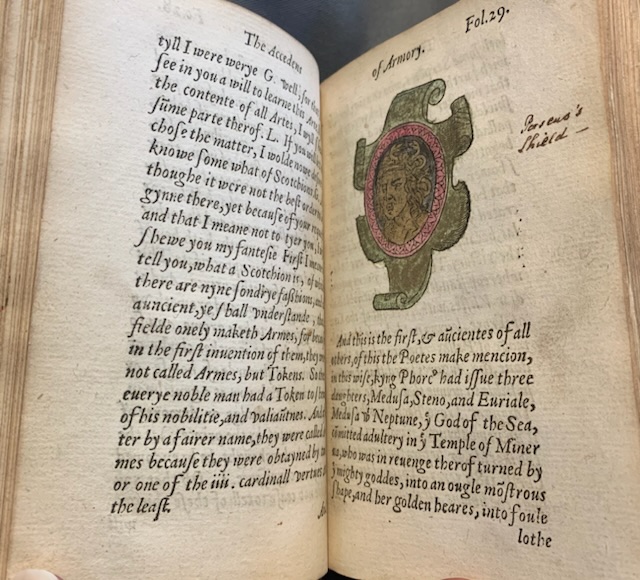 The Accedens
tyll I were werye G. well, for
ſee in you a will to learne this
the contente of all Artes, I wyll
ſũme parte therof. L. If you
choſe the matter, I wolde
knowe ſome what of Scotchion
thoughe it were not the beſt
gynne there, yet becauſe of your
and that I meane not to tyer you,
ſhewe you my fanteſie Firſt I
tell you, what a Scotchion is, of
there are nyne ſondrye faſſiõns,
auncient, ye ſhall vnderſtande,
fielde onely maketh Armes, for
in the firſt invention of them, they
not called Armes, but Tokens. So
euerye noble man had a Token to
of his nobilitie, and valiaũtnes. And
ter by a fairer name, they were called
mes becauſe they were obtayned by
or one of the iiii. cardinall vertues
the leaſt.
of Armory.
Fol. 29.
Perseus's
Shield —
And this is the firſt, & aũcientes of all
others, of this the Poetes make mencion,
in this wiſe, kyng Phorcꝰ had iſſue three
daughters, Meduſa, Steno, and Euriale,
Meduſa wᵗ Neptune, yͤ God of the Sea,
cõmitted adultery in yͤ Temple of Miner
ua, who was in reuenge therof turned by
yͤ mighty goddes, into an ougle mõſtrous
ſhape, and her golden heares, into foule
lothe